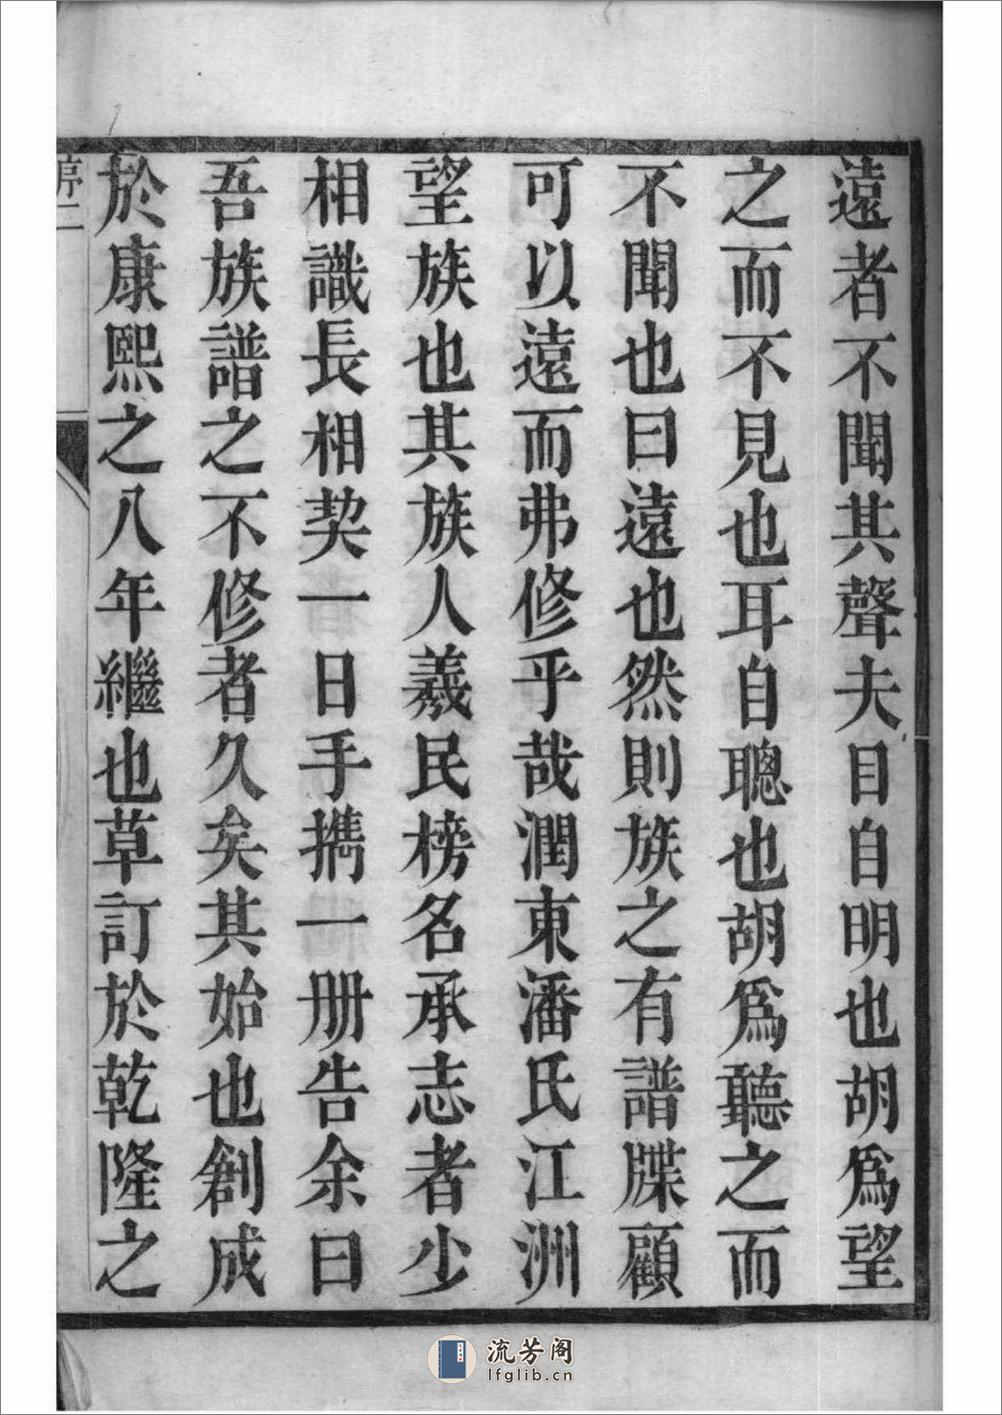 遠者不聞其聲夫目自明也胡爲望
之而不見也耳自聰也胡爲聽之而
不聞也曰遠也然則族之有譜牒顧
可以遠而弗修乎哉潤東潘氏江洲
望族也其族人羲民榜名承志者少
相識長相契一日手擕一册告余曰
吾族譜之不修者久矣其始也創成
於康熙之八年繼也草訂於乾隆之
序二
流芳阁
lfglib.cn